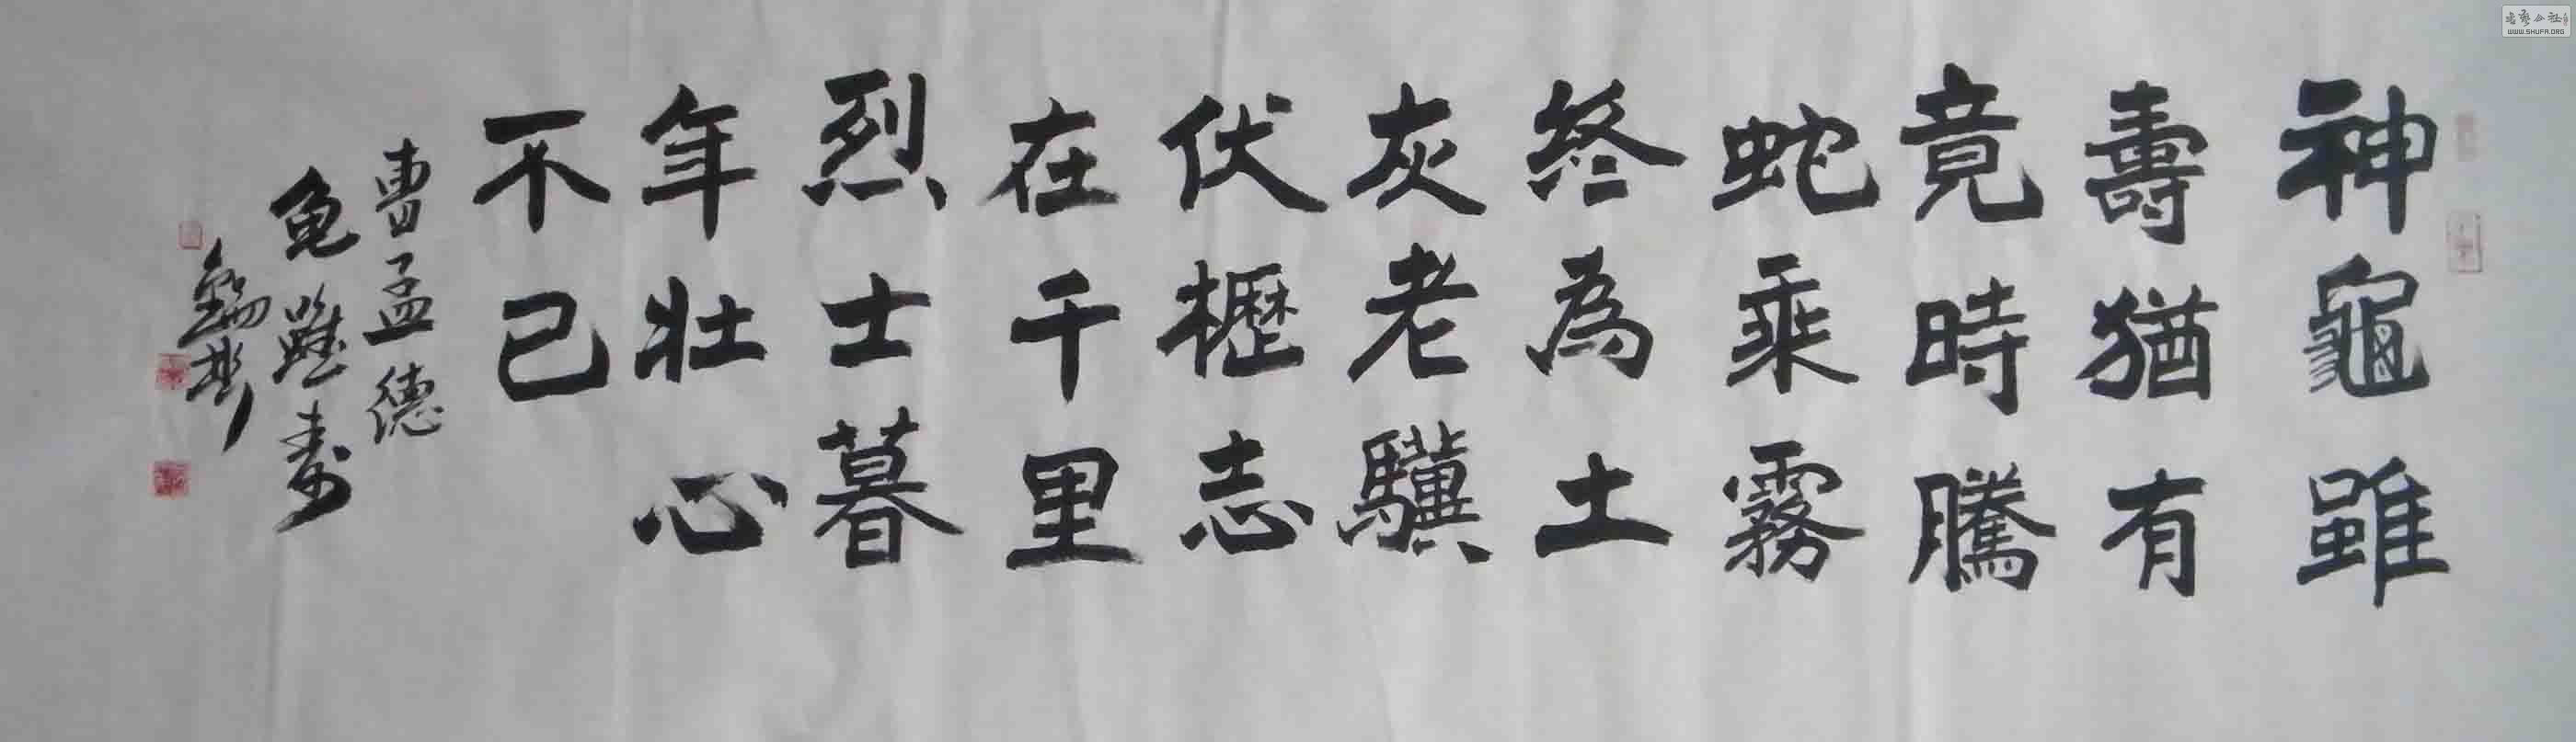 神龜雖
壽猶有
竟時騰
蛇乘霧
終為土
灰老驥
伏櫪志
在千里
烈士暮
年壯心
不已
曹孟德
龟雖壽
WWW.SHUFA.ORG